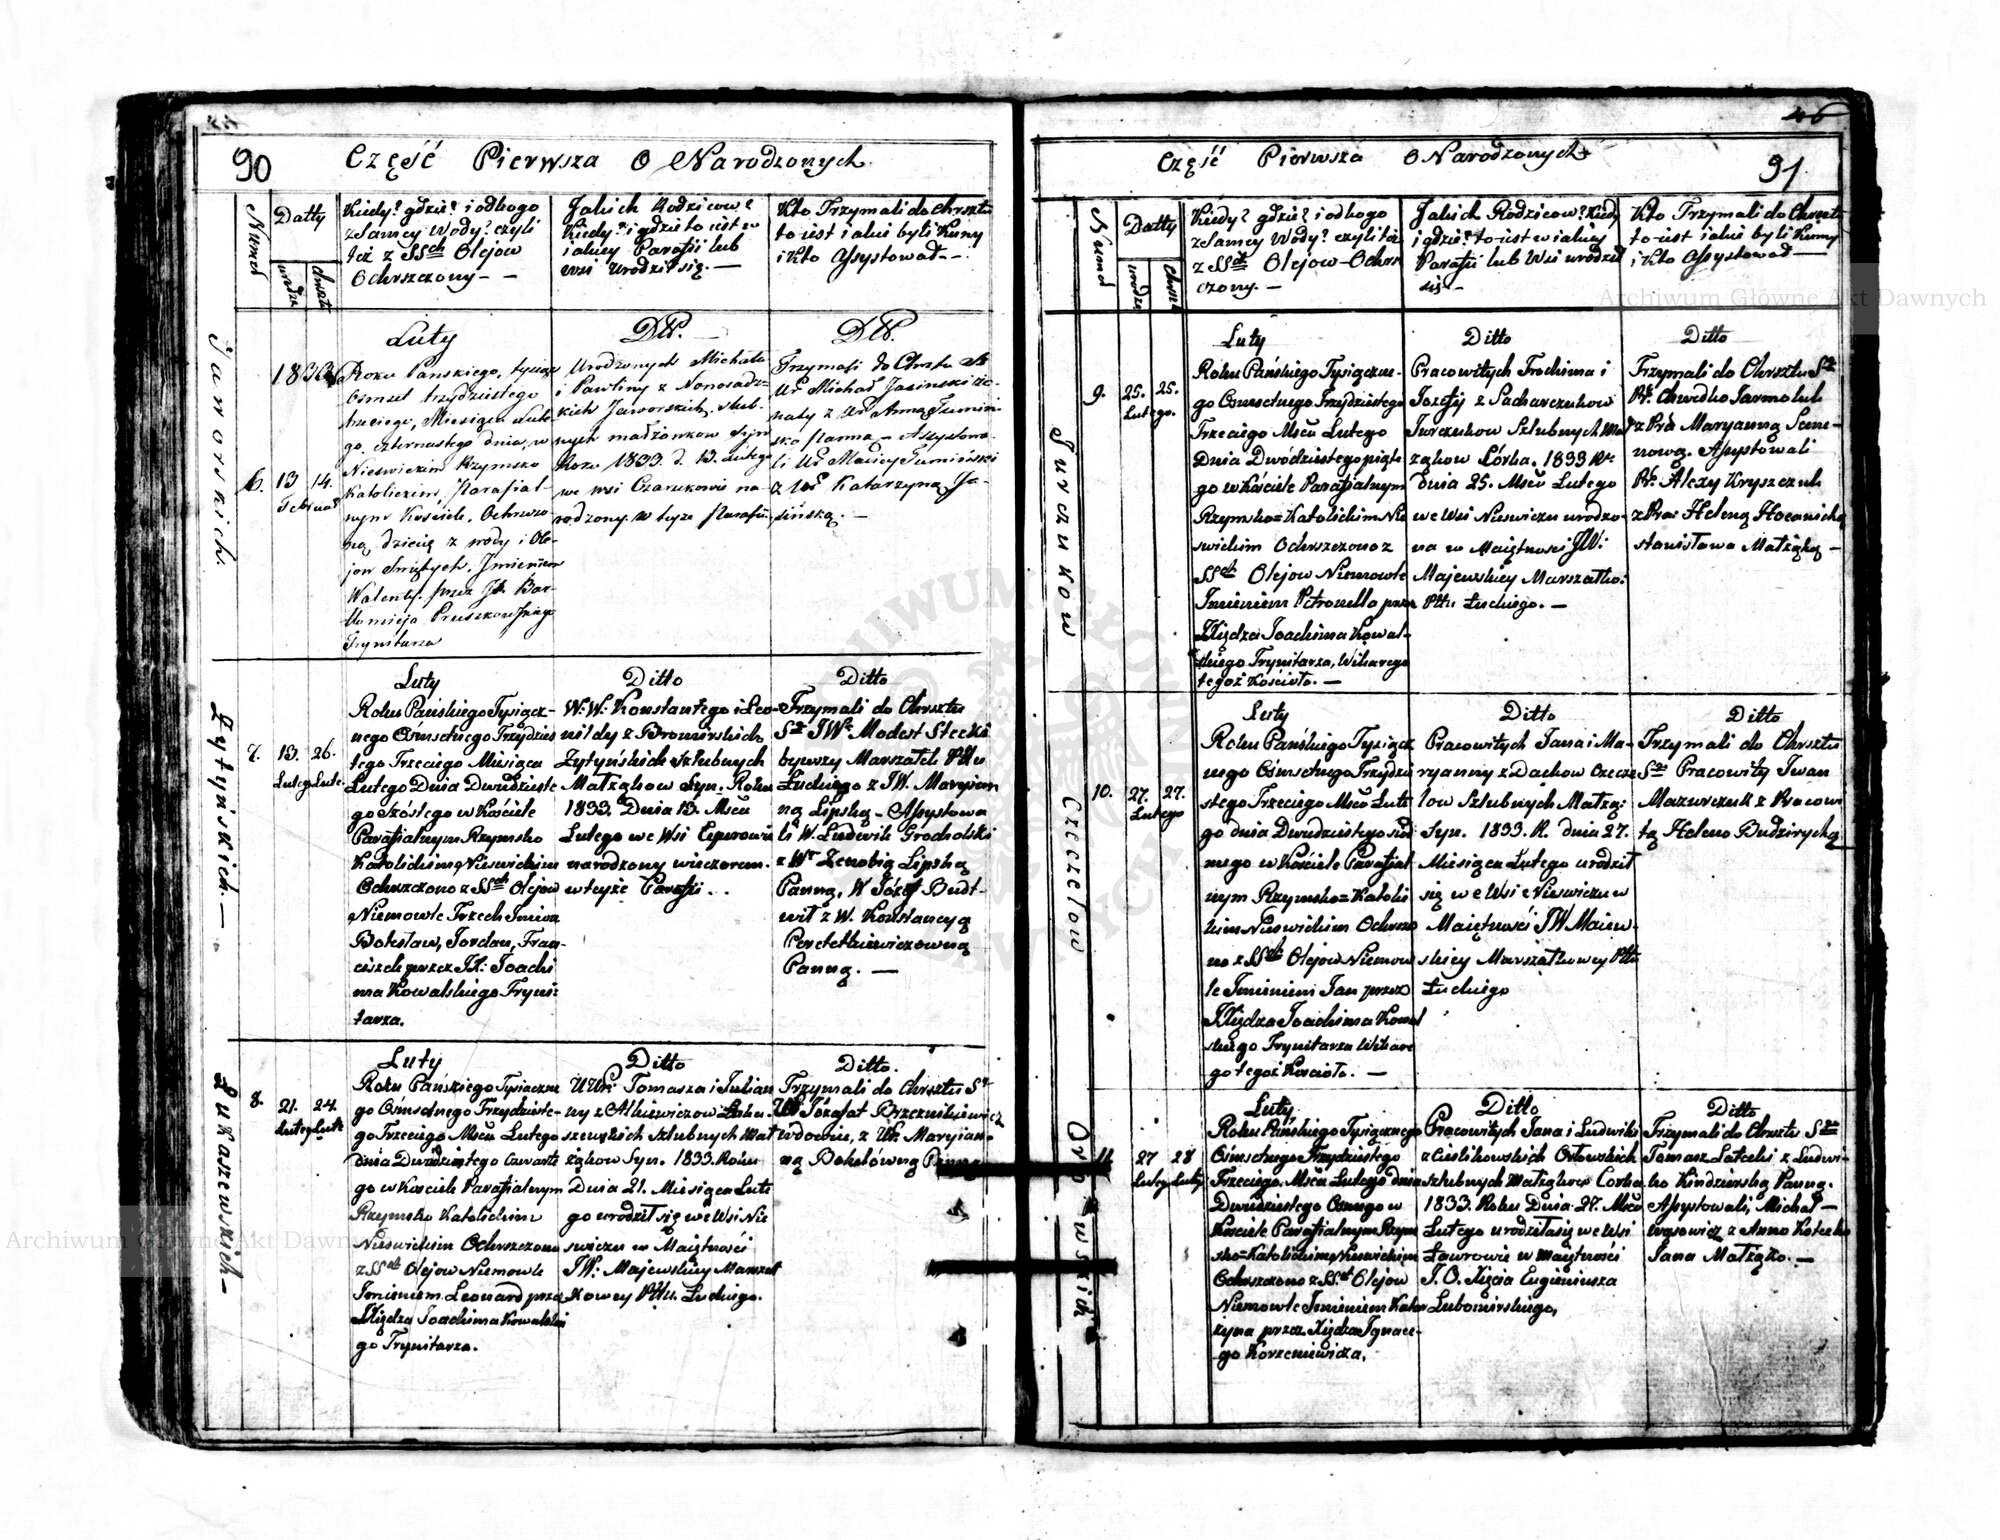 90 Część Pierwsza O Narodzonych.
Numer
Datty
urodze
chrzstu
Kiedy? gdzie? i odkogo
z Samey Wody? czyli
też z SSch Olejow
Ochrzczony - -
Jakich Rodzicow?
Kiedy? i gdzie to iest w
iakiey Parafii lub
wsi urodził się. —
Kto Trzymali do Chrztu
to iest iakie byli Kumy
i Kto Assystował - -
Jaworskich.
6.
1833
13 14.
Februar
Luty
Roku Panskiego, tysiąc
osmset trzydziestego
trzeciego, Miesiąca Lute-
go, czternastego dnia, w
Nieswickim Rzymsko
Katolickim, Parafial-
nym Kosciele, Ochrzczo-
no dziecię z wody i Ole-
jow Swiętych, Imieniem
Walenty, przez JX. Bar-
tłomieja Pruszkowskiego
Trynitarza
Urodzonych Michała
i Pawliny z Nowosadz-
kich Jaworskich, slub-
nych małżonkow Syn
Roku 1833. d. 13. Lutego
we wsi Czarukowie na-
rodzony w teyże Parafii.
Trzymali do Chrztu S.
Ur Michał Jasinski Że-
naty z Ur Anną Tumin-
ską Panną — Assystowa-
li Ur Maciey Tuminski
z Ur Katarzyną Ja-
sińską. —
Zytyńskich —
7.
13. 26.
Luteg Lute.
Luty
Roku Pańskiego Tysiącz-
nego Osmsetnego Trzydzies
tego Trzeciego Miesiąca
Lutego Dnia Dwudzieste
go Szóstego w Kościele
Parafialnym Rzymsko
Katolickim Nieswickim
Ochrzczono z SSch Olejow
Niemowle Trzech Imion
Bolesław, Jordan, Fran-
ciszek przez JX: Joachi
ma Kowalskiego Tryni-
tarza.
Ditto
W: W: Konstantego i Leo-
nildy z Bromirskich
Zytyńskich Szlubnych
Małżąkow Syn. Roku
1833. Dnia 13. Mscu
Lutego we Wsi Czarowie
narodzony wieczorem.
w teyże Parafii. .
Ditto
Trzymali do Chrztu
Sgo JWr Modest Stecki
bywszy Marszałek Pttu
Łuckiego z JW. Maryian
ną Lipską — Assystowa
li W. Ludwik Grocholski
z Wr Zenobią Lipską
Panną, W Józef Budt-
wił z W. Konstancyą
Peretetkiewiczowną
Panną. —
Lukaszewskich —
8.
21. 24.
Luteg Lute
Luty
Roku Pańskiego Tysiączne
go Osmsetnego Trzydzieste-
go Trzeciego Mscu Lutego
dnia Dwudziestego Czwarte
go w Kościele Parafialnym
Rzymsko Katolickim
Nieswickim Ochrzczono
z SSch Olejow Niemowle
Imieniem Leonard przez
Xiędza Joachima Kowalski
go Trynitarza.
Ditto
UUr: Tomasza i Julian
ny z Alkiewiczow Łuka-
szewskich Szlubnych Mał
żąkow Syn. 1833. Roku
Dnia 21. Miesiąca Lute
go urodził się we Wsi Nie
swiczu w Maiętności
JW: Majewskiey Marszał
kowey Pttu. Łuckiego.
Ditto.
Trzymali do Chrztu Sgo
Ur Józafat Brzeznikiewicz
wdowiec, z Ur. Maryian-
ną Bokslówną Panną
46
Część Pierwsza O Narodzonych 91.
Numer
Datty
urodzę
chrzst
Kiedy? gdzie? i odkogo
z Samey Wody? czyli też
z SSch Olejow Ochrz
czony. —
Jakich Rodzicow? Kiedy
i gdzie? to iest w iakiey
Parafii lub Wsi urodził
się —
Kto Trzymali do Chrztu
to iest iakie byli Kumy
i Kto Assystował —
Jurczukow
9.
25. 25.
Lutego.
Luty
Roku Pańskiego Tysiączne-
go Osmsetnego Trzydziestego
Trzeciego Mscu Lutego
Dnia Dwódziestego piąte
go w Kościele Parafialnym
Rzymsko=Katolickim Nie
swickim Ochrzczono z
SSch Olejow Niemowle
Imieniem Petronella przez
Xiędza Joachima Kowal-
skiego Trynitarza, Wikarego
tegoż Kościoła. —
Ditto
Pracowitych Trochima i
Jozefy z Pacharczukow
Jurczukow Szlubnych Mał
żąkow Córka. 1833 Rk.
Dnia 25. Mscu Lutego
we Wsi Nieswiczu urodzo-
na w Maiętnosci JW:
Majewskiey Marszałko:
Pttu Łuckiego. —
Ditto
Trzymali do Chrztu Sgo
Pr. Chwedko Jarmoluk
z Prą Maryanną Seme-
nową. Assystowali
Pr. Alexy Kryszczuk
z Pra: Heleną Hocanicką
Stanisława Małżąką —
Czeczełow
10.
27. 27.
Lutego
Luty
Roku Pańskiego Tysiącz
nego Osmsetnego Trzydzie
stego Trzeciego Mscu Lute
go dnia Dwudziestego siod
mego w Kościele Parafial
nym Rzymsko=Katolic
kim Nieswickim Ochrzczo
no z SSch Olejow Niemow
le Imieniem Jan przez
Xiędza Joachima Kowal
skiego Trynitarza Wikare
go tegoż Kościoła. —
Ditto
Pracowitych Jana i Ma-
ryanny z Dachow Czecze
łow Szlubnych Małżą:
Syn. 1833. R. dnia 27.
Miesiąca Lutego urodził
się we Wsi Nieswiczu w
Maiętności JW Maiew-
skiey Marszałkowey Pttu
Łuckiego
Ditto
Trzymali do Chrztu
Sgo Pracowity Iwan
Mazurczuk z Pracowi
tą Heleną Budzirychą
Orłowskich
11.
27 28
Luteg Luty
Luty
Roku Pańskiego Tysiącznego
Osmsetnego Trzydziestego
Trzeciego Mscu Lutego dnia
Dwudziestego Osmego w
Kosciele Parafialnym Rzym
sko=Katolickim, Nieswickim
Ochrzczono z SSch Olejow
Niemowle Imieniem Katar
żyna przez Xiędza Ignace-
go Korzeniewicza.
Ditto
Pracowitych Jana i Ludwiki
z Cieslikowskich Orłowskich
Szlubnych Małżąkow Corka
1833. Roku Dnia 27. Mscu
Lutego urodziłasię we Wsi
Ławrowie w maiętności
J. O. Xięcia Eugieniusza
Lubomirskiego.
Ditto
Trzymali do Chrztu Sgo
Tomasz Łatecki z Ludwi-
ką Kindzierską Panną.
Assystowali, Michał —
Wąsowicz z Anną Kotecką
Jana Małżąką. —
Archiwum Główne Akt Dawnych
Archiwum Główne Akt Dawnych